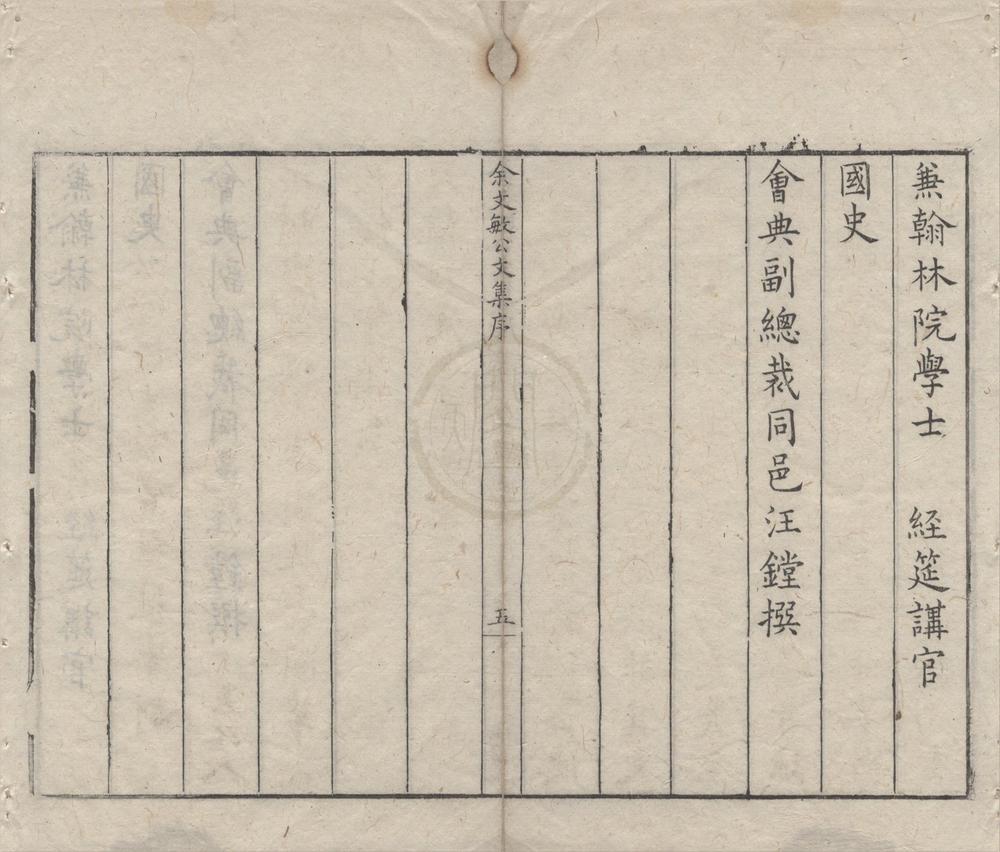 兼翰林院學士　經筵講官
國史
會典副總裁同邑汪鏜撰
余文敏公文集序
五